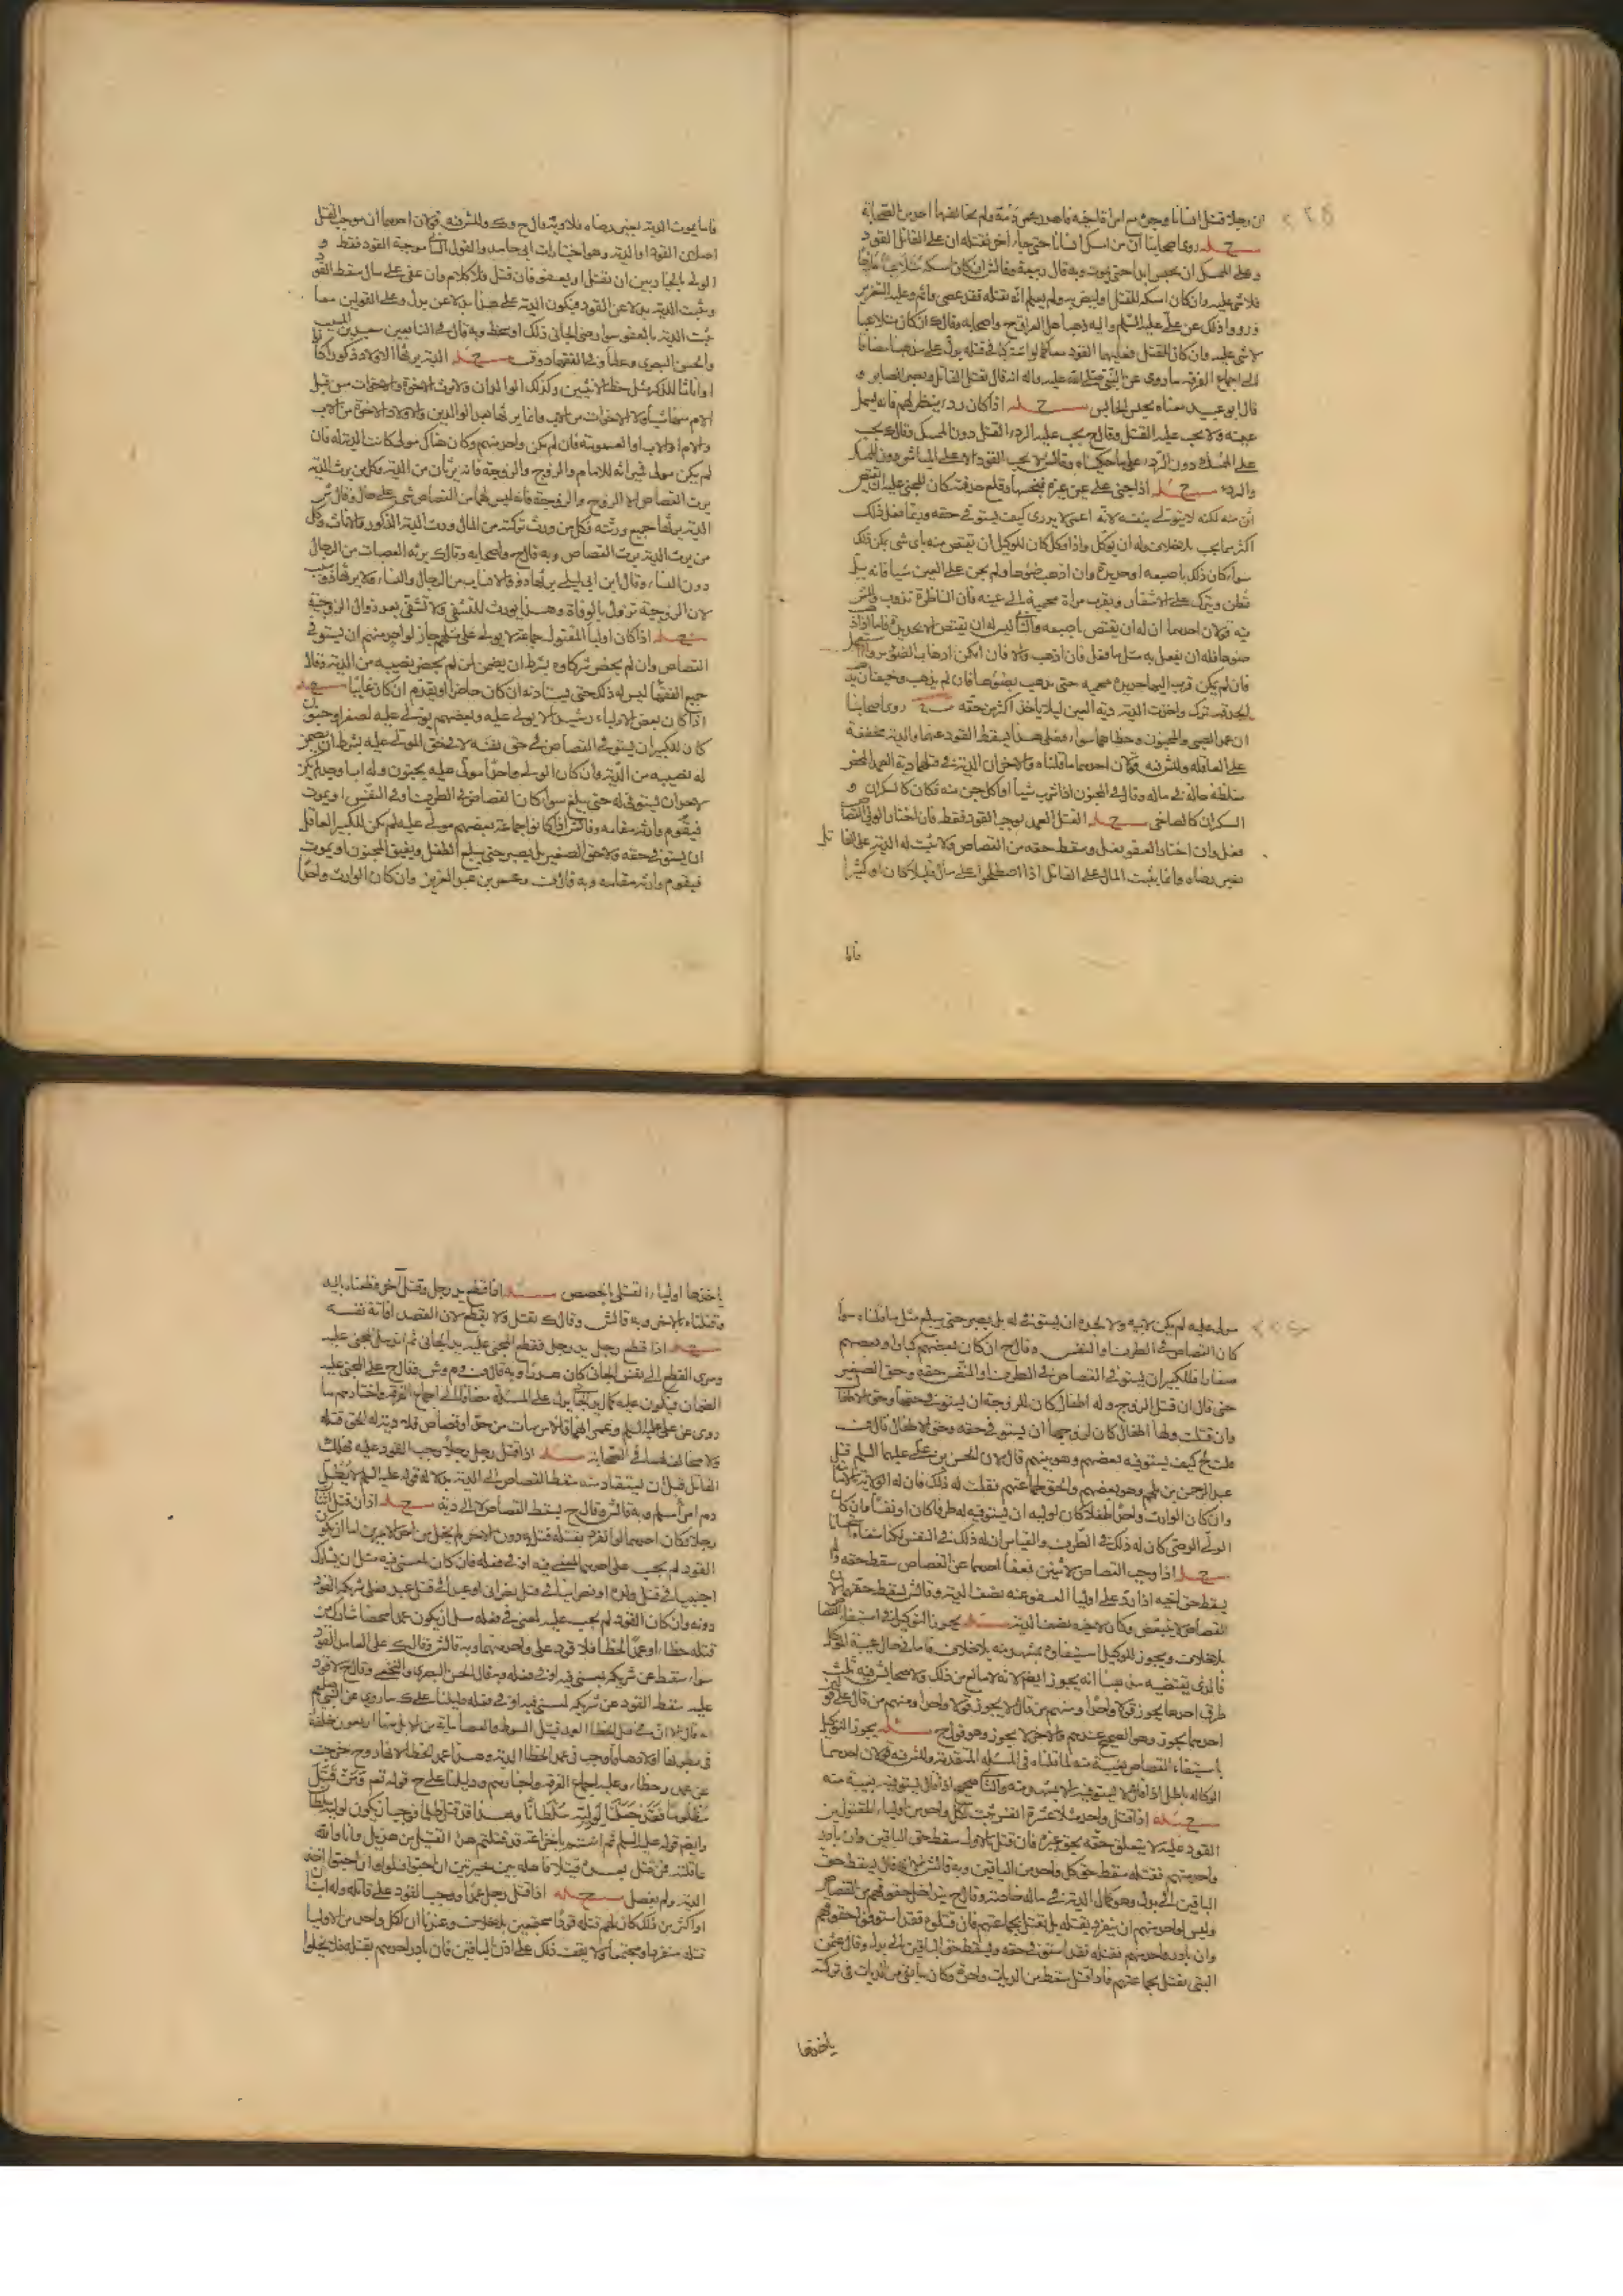 ان رجلا قتل انسانا
روى اصحابنا ان من امسك انسانا حتى جاء اخر فقتله ان على القاتل القود
وعلى الممسك ان يحبس ابدا حتى يموت وبه قال ربيعة وقال ش ان كان امسكه متلاعبا مازحا
فلا شى عليه وان كان امسكه للقتل او ليضربه ولم يعلم انه يقتله فقد عصى واثم وعليه التعزير
ورووا ذلك عن على عليه السلم واليه ذهب اهل العراق ح واصحابه وقال ك ان كان متلاعبا
لا شى عليه وان كان للقتل فعليهما القود معا كما لو اشتركا فى قتله
الى اجماع الفرقه ما روى عن النبى صلى الله عليه واله انه قال يقتل القاتل ويصبر الصابر و
قال ابو عبيد معناه يحبس الحابس اذا كان ردء ينظر لهم فانه يسمل
عينه ولا يجب عليه القتل وقال ح يجب على الردء القتل دون الممسك وقال ك يجب
على الممسك دون الردء على ما حكيناه وقال ش لا يجب القود الا على المباشر دون الممسك
والردء اذا جنى على عين غيره فبخصها وقلع حدقته كان للمجنى عليه ان يقتص
لكنه لا يتولى بنفسه لانه اعمى لا يدرى كيف يستوفى حقه وربما فعل ذلك
اكثر مما يجب بلا خلاف وله ان يوكل واذا وكل كان للوكيل ان يقتص منه باى شى يمكن ذلك
سواء كان ذلك باصبعه او حديدة وان اذهب ضوءها ولم يجن على العين شيا فانه يبل
قطن ويترك على الاشفار ويقرب مراة محمية الى عينه فان الناظرة تذوب وللش
فيه قولان احدهما ان له ان يقتص باصبعه والثانى ليس له ان يقتص الا بحديدة
فان لم يكن قرب اليها حديدة محمية حتى يذهب بضوءها فان لم يذهب وخيف ان يذهب
الحدقة ترك واخذت الدية دية العين ليلا ياخذ اكثر من حقه روى اصحابنا
ان عمد الصبى والمجنون وخطاهما سواء فعلى هذا يسقط القود عنهما والدية مخففة
على العاقله وللش فيه قولان احدهما ما قلناه والاخر ان الدية فى قتلهما دية العمد المحض
مغلظة حالة فى ماله وقال فى المجنون اذا شرب شيأ او اكل جن منه فكان كالسكران و
السكران كالصاحى القتل العمد يوجب القود فقط فان اختار الولى القصاص
فعل وان اختار العفو فعل وسقط حقه من القصاص ولا يثبت له الدية على القاتل
بغير رضاه وانما يثبت المال على القاتل اذا اصطلحوا على مال قليلا كان او كثيرا
فاما
فاما ثبوت الدية بغير رضاه فلا وبه قال ح وك وللش فيه قولان احدهما ان موجب القتل
اصلان القود او الدية وهو اختيارات ابى حامد والقول الثانى موجبه القود فقط و
الولى بالخيار بين ان يقتل او يعفو فان قتل فلا كلام وان عفى على مال سقط القود
وثبت الدية بدلا عن القود فيكون الدية على هذا بدلا عن بدل وعلى القولين معا
ثبت الدية بالعفو سواء رضى الجانى ذلك او سخط وبه قال فى التابعين سعيد بن المسيب
والحسن البصرى وعطا وفى الفقهاء د وق الدية يرثها الاولاد ذكورا كانوا
او اناثا للذكر مثل حظ الانثيين وكذلك الوالدان ولا يرث الاخوة والاخوات من قبل
الام منها شيأ ولا الاخوات من الاب وانما يرثها بعد الوالدين والاولاد الاخوة من الاب
والام او الاب او العمومة فان لم يكن واحد منهم وكان هناك مولى كانت الدية له فان
لم يكن مولى فميراثه للامام والزوج والزوجة فانه يرثان من الدية وكل من يرث الدية
يرث القصاص الا الزوج والزوجة فانه ليس لهما من القصاص شى على حال وقال ش
الدية يرثها جميع ورثته فكل من ورث تركته من المال ورث الدية الذكور والاناث وكل
من يرث الدية يرث القصاص وبه قال ح واصحابه وقال ك يرثه العصبات من الرجال
دون النساء وقال ابن ابى ليلى يرثها ذوو الانساب من الرجال والنساء ولا يرثها ذو سبب
لان الزوجية تزول بالوفاة وهذا يورث للتشفى ولا تشفى بعد زوال الزوجية
اذا كان اولياء المقتول جماعة لا يولى على مثلهم جاز لواحد منهم ان يستوفى
القصاص وان لم يحضر شركاوه بشرط ان يضمن لمن لم يحضر نصيبه من الدية وقال
جميع الفقها ليس له ذلك حتى يستاذنه ان كان حاضرا او يقدم ان كان غايبا
اذا كان بعض الاولياء رشيدا لا يولى عليه وبعضهم يولى عليه لصغر او جنون
كان للكبير ان يستوفى القصاص فى حق نفسه لا فى حق المولى عليه بشرط ان يضمن
له نصيبه من الدية وان كان الولى واحدا مولى عليه بجنون وله اب او جد لم يكن
لاحد ان يستوفى له حتى يبلغ سواء كان القصاص فى الطرف او فى النفس او يموت
فيقوم وارثه مقامه وقال ش اذا كانوا جماعة بعضهم مولى عليه لم يكن للكبير العاقل
ان يستوفى حقه ولا حق الصغير بل يصبر حتى يبلغ الطفل ويفيق المجنون او يموت
فيقوم وارثه مقامه وبه قال ف وعمر بن عبد العزيز وان كان الوارث واحدا
مولى عليه لم يكن لابيه ولا لجده ان يستوفى له بل يصبر حتى يبلغ مثل ما قلناه سواء
كان القصاص فى الطرف او النفس وقال ح ان كان بعضهم كبارا وبعضهم
صغارا فللكبير ان يستوفى القصاص فى الطرف او النفس حقه وحق الصغير
حتى قال ان قتل الزوج وله اطفال كان للزوجة ان يستوفى حقها وحق الاطفال
وان قتلت ولها اطفال كان لزوجها ان يستوفى حقه وحق الاطفال قال ف
قلت لح كيف يستوفيه بعضهم وهو بينهم قال لان الحسن بن على عليهما السلم قتل
عبد الرحمن بن ملجم وهو بعضهم والحق لجماعتهم فقلت له ذلك فان له الولاية بالامامة
وان كان الوارث واحدا طفلا كان لوليه ان يستوفيه له طرفا كان او نفسا وان كان
الولى الوصى كان له ذلك فى الطرف والقياس ان له ذلك فى النفس
اذا وجب القصاص لاثنين فعفا احدهما عن القصاص سقط حقه ولم
يسقط حق اخيه اذا رد على اولياء المعفو عنه نصف الدية وقال ش يسقط حقهما لان
القصاص لا يتبعض وكان لاخيه نصف الدية يجوز التوكيل فى استيفاء القصاص
بلا خلاف ويجوز للوكيل استيفاوه بمشهد منه بلا خلاف فاما فى حال غيبة الموكل
فالذى يقتضيه مذهبنا انه يجوز ايضا لانه لا مانع من ذلك ولاصحاب ش فيه ثلث
طرق احدها يجوز قولا واحدا ومنهم من قال لا يجوز قولا واحدا ومنهم من قال على قولين
احدهما يجوز وهو الصحيح عندهم والاخر لا يجوز وهو قول ح يجوز التوكيل
باستيفاء القصاص بغيبة منه لما قلناه فى المسئلة المتقدمة وللش فيه قولان احدهما
الوكالة باطل
اذا قتل واحد مثلا عشرة انفس ثبت لكل واحد من اولياء المقتولين
القود عليه لا يتعلق حقه بحق غيره فان قتل بالاول سقط حق الباقين وان بادر
واحد منهم فقتله سقط حق كل واحد من الباقين وبه قال ش الا انه قال يسقط حق
الباقين الى بدل وهو كمال الدية فى ماله خاصة وقال ح يتداخل حقوقهم من القصاص
وليس لواحد منهم ان ينفرد بقتله بل يقتل بجماعتهم فان قتلوه فقد استوفوا حقوقهم
وان بادر واحد منهم فقتله فقد استوفى حقه وسقط حق الباقين لا الى بدل وقال عثمن
البتى يقتل بجماعتهم فاذا قتل سقط من الديات واحدة وكان ما بقى من الديات فى تركته
ياخذها
ياخذها اولياء القتلى بالحصص اذا قطع يد رجل وقتل اخر قطعناه باليد
وقتلناه بالاخر وبه قال ش وقال ك يقتل ولا يقطع لان القصد افاتة نفسه
اذا قطع رجل يد رجل فقطع المجنى عليه يد الجانى ثم اندمل المجنى عليه
وسرى القطع الى نفس الجانى كان هدرا وبه قال ف وم وش وقال ح على المجنى عليه
الضمان فيكون عليه كمال دية الجانى
روى عن على عليه السلم وعمر انهما قالا من مات من حد او قصاص فلا دية له الحق قتله
ولا مخالف لهما فى الصحابة اذا قتل رجل رجلا ووجب القود عليه فهلك
القاتل قبل ان يستقاد منه سقط القصاص الى الدية بدلالة قوله عليه السلم لا يطل
دم امرئ مسلم وبه قال ش وقال ح يسقط القصاص لا الى دية اذا ان قتل اثنان
رجلا وكان احدهما لو انفرد بقتله قتل به دون الاخر لم يخل من احد الامرين اما ان يكون
القود لم يجب على احدهما لمعنى فيه او فى فعله فان كان لمعنى فيه مثل ان يشارك
اجنبيا فى قتل ولده او نصرانيا فى قتل نصرانى او عبدا فى قتل عبد فعلى شريكه القود
دونه وان كان القود لم يجب عليه لمعنى فى فعله مثل ان يكون عمدا محضا شارك من
قتله خطأ او عمد الخطا فلا قود على واحد منهما وبه قال ش وقال ك على العامد القود
سواء سقط عن شريكه لمعنى فيه او فى فعله وبه قال الحسن البصرى والنخعى وقال ح لا قود
عليه سقط القود عن شريكه لمعنى فيه او فى فعله دليلنا على ك ما روى عن النبى
انه قال الا ان فى قتل الخطأ العمد قتيل السوط والعصا ماية من الابل منها اربعون خلفة
فى بطونها اولادها فاوجب فى عمد الخطا الدية وهذا عمد الخطا لانها روح خرجت
عن عمد وخطاء وعليه اجماع الفرقه واخبارهم ودليلنا على ح قوله تعالى ومن قتل
مظلوما فقد جعلنا لوليه سلطانا وهذا قد قتل ظلما فوجب ان يكون لوليه سلطان
وايضا قوله عليه السلم ثم انتم يا خزاعة قد قتلتم هذا القتيل من هذيل وانا والله
عاقلته فمن قتل بعده قتيلا فاهله بين خيرتين ان احبوا قتلوا وان احبوا اخذوا
الدية ولم يفصل اذا قتل رجل عمدا ووجب القود على قاتله وله ابنان
او اكثر من ذلك كان لهم قتله قودا مجتمعين بلا خلاف وعندنا ان لكل واحد من الاوليا
قتله منفردا ومجتمعا ولا يقف ذلك على اذن الباقين فان بادر احدهم بقتله فلا يخلوا